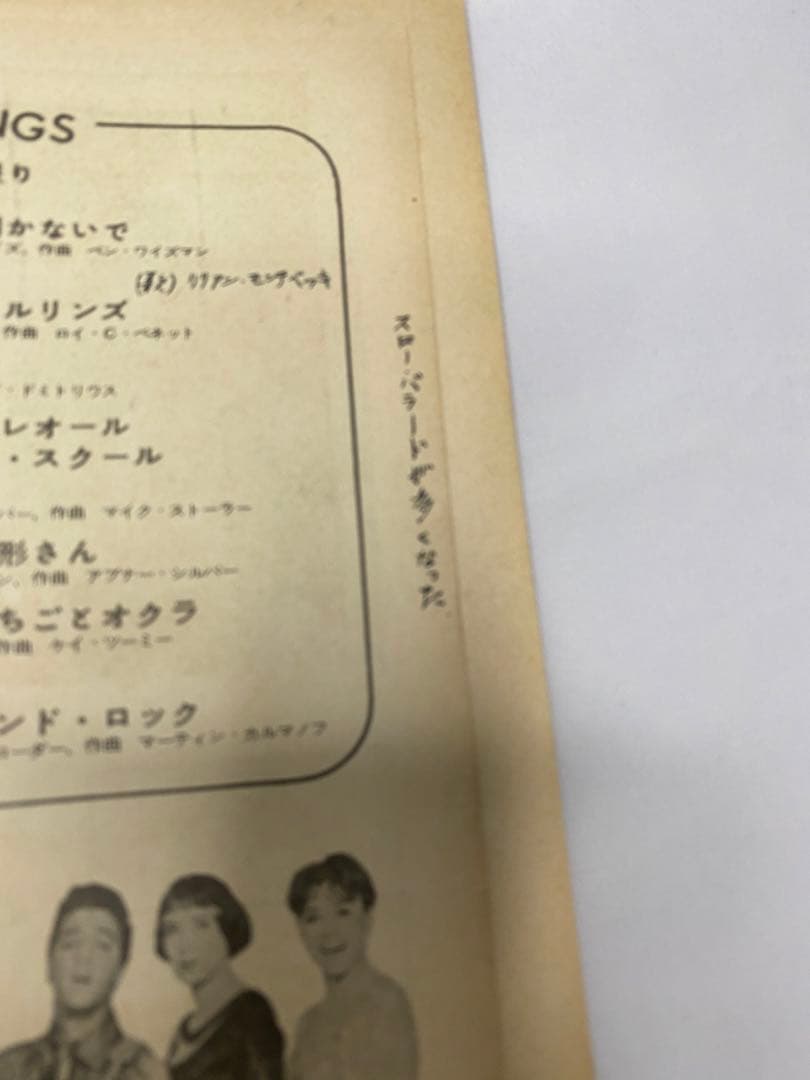 NGS
り
かないで
ズ、作曲 ベン・ワイズマン
(妻と) リリアン・モンテベッキ
ルリンズ
作曲 ロイ・C・ベネット
・ドミトリウス
レオール
・スクール
バー、作曲 マイク・ストーラー
形さん
ン、作曲 アブナー・シルバー
ちごとオクラ
作曲 ケイ・ツーミー
ンド・ロック
ローダー、作曲 マーティン・カルマノフ
スロー・バラードが多くなった